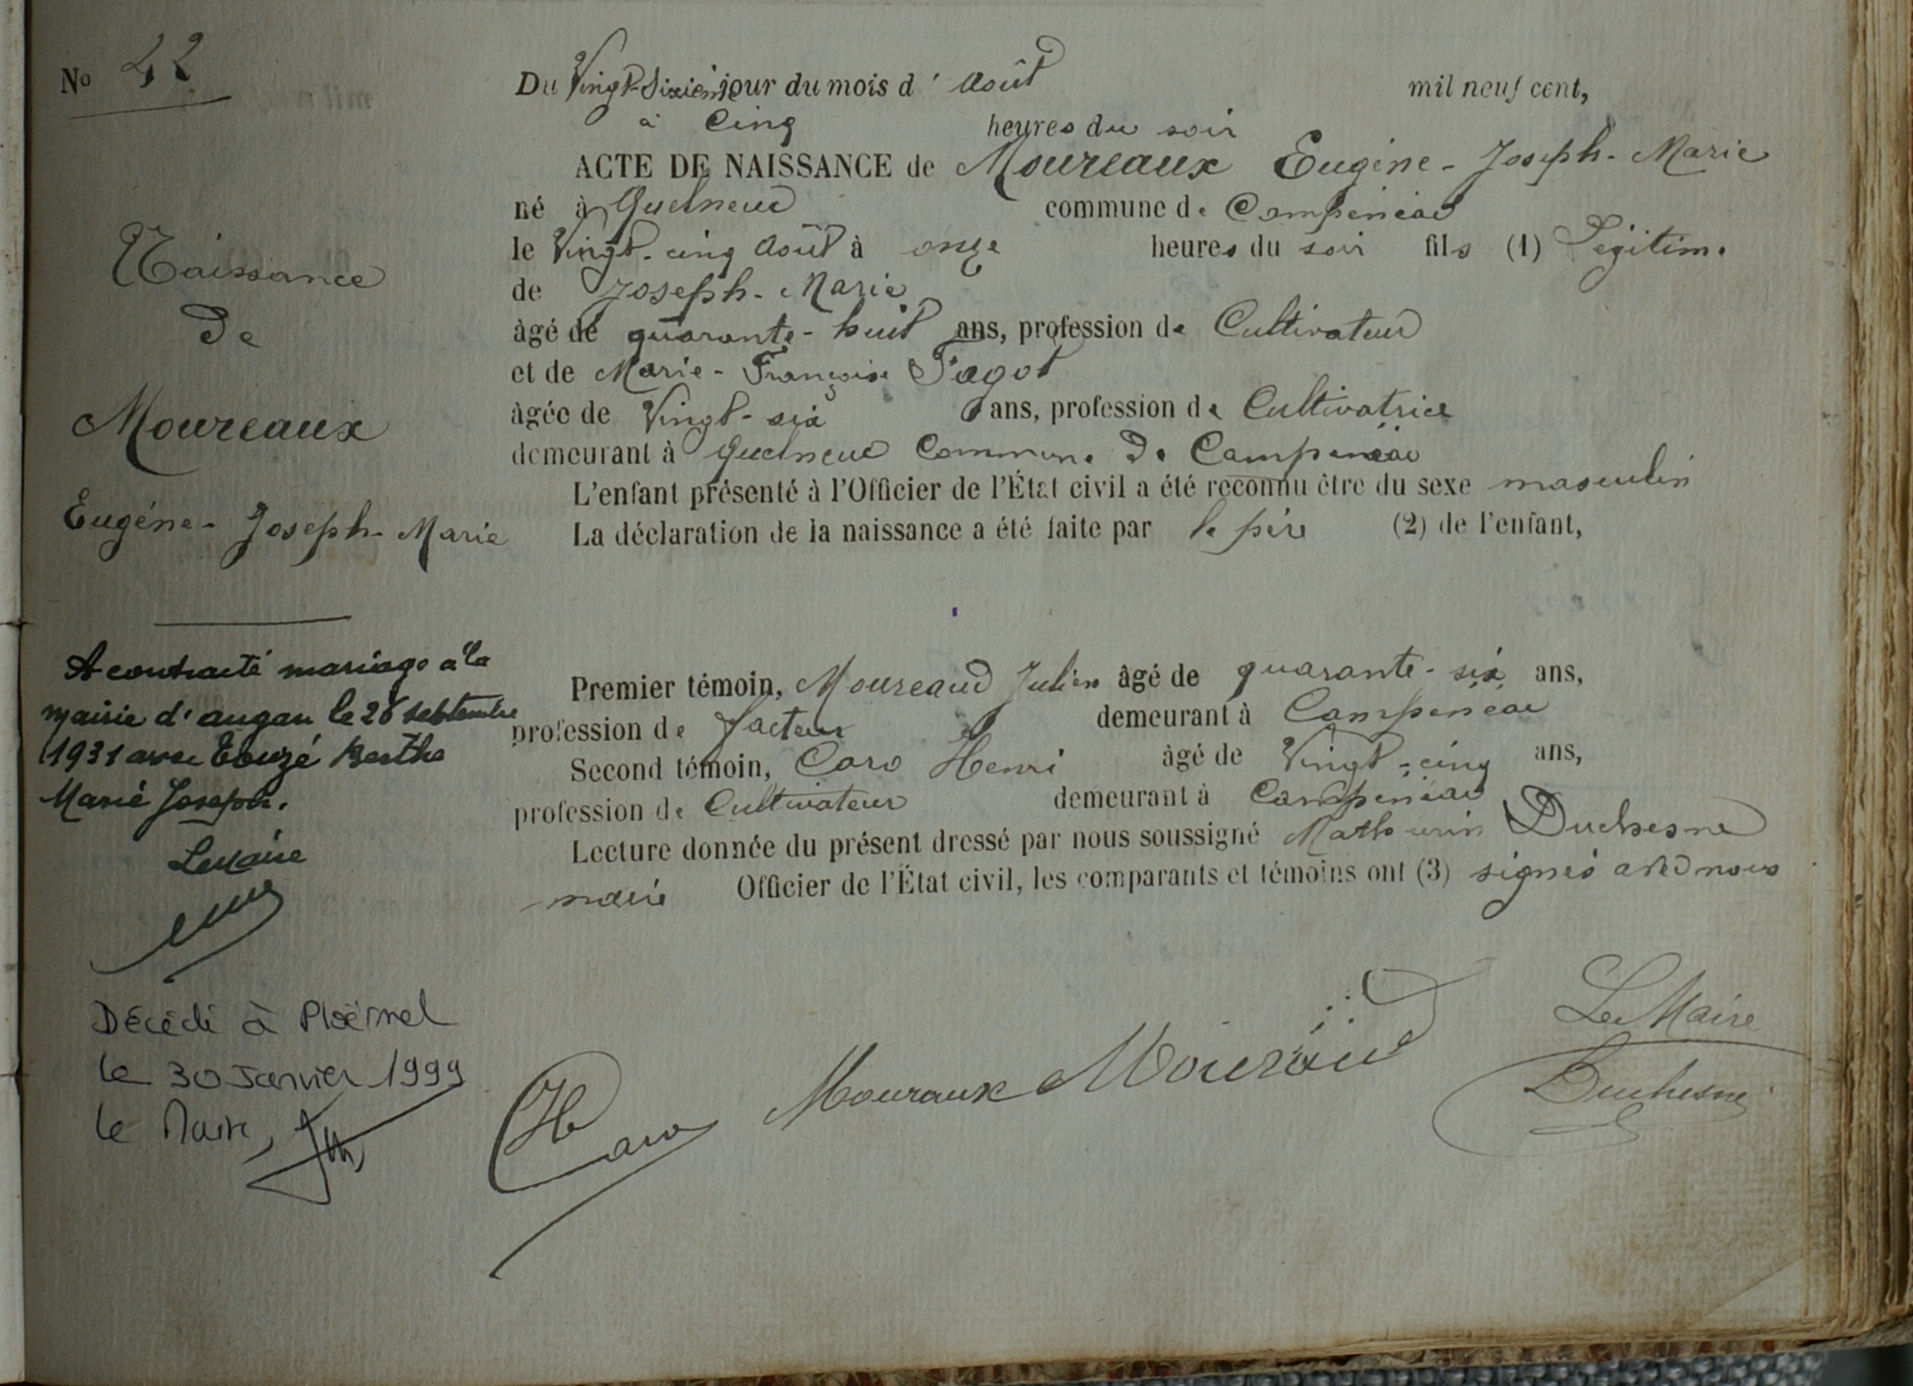 No 42
Naissance
De
Moureaux
Eugéne - Joseph - Marie
A contracté mariage à la
mairie d'augan le 28 septembre
1931 avec Eouzé Berthe
Marie Joseph.
Le Maire
Décédé à Ploërmel
le 30 Janvier 1999
le Maire,
Du Vingt-Sixième jour du mois d' Août mil neuf cent,
à Cinq heures du soir
ACTE DE NAISSANCE de Moureaux Eugéne - Joseph - Marie
né à Quelneuc commune de Campénéac
le Vingt-cinq Août à onze heures du soir fils (1) Légitime
de Joseph - Marie
âgé de quarante - huit ans, profession de Cultivateur
et de Marie - Françoise Fagot
âgée de Vingt - six ans, profession de Cultivatrice
demeurant à Quelneuc Commune De Campénéac
L'enfant présenté à l'Officier de l'État civil a été reconnu être du sexe masculin
La déclaration de la naissance a été faite par le père (2) de l'enfant,
Premier témoin, Moureaud Julien âgé de quarante - six ans,
profession de facteur demeurant à Campénéac
Second témoin, Caro Henri âgé de Vingt - cinq ans,
profession de Cultivateur demeurant à Campénéac
Lecture donnée du présent dressé par nous soussigné Mathurin Duchesne
maire Officier de l'État civil, les comparants et témoins ont (3) signés avec nous
H Caro Mouraux Le Maire
Duchesne